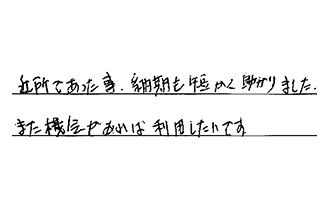 近所であった事、納期も短かく助かりました。
また機会があれば利用したいです